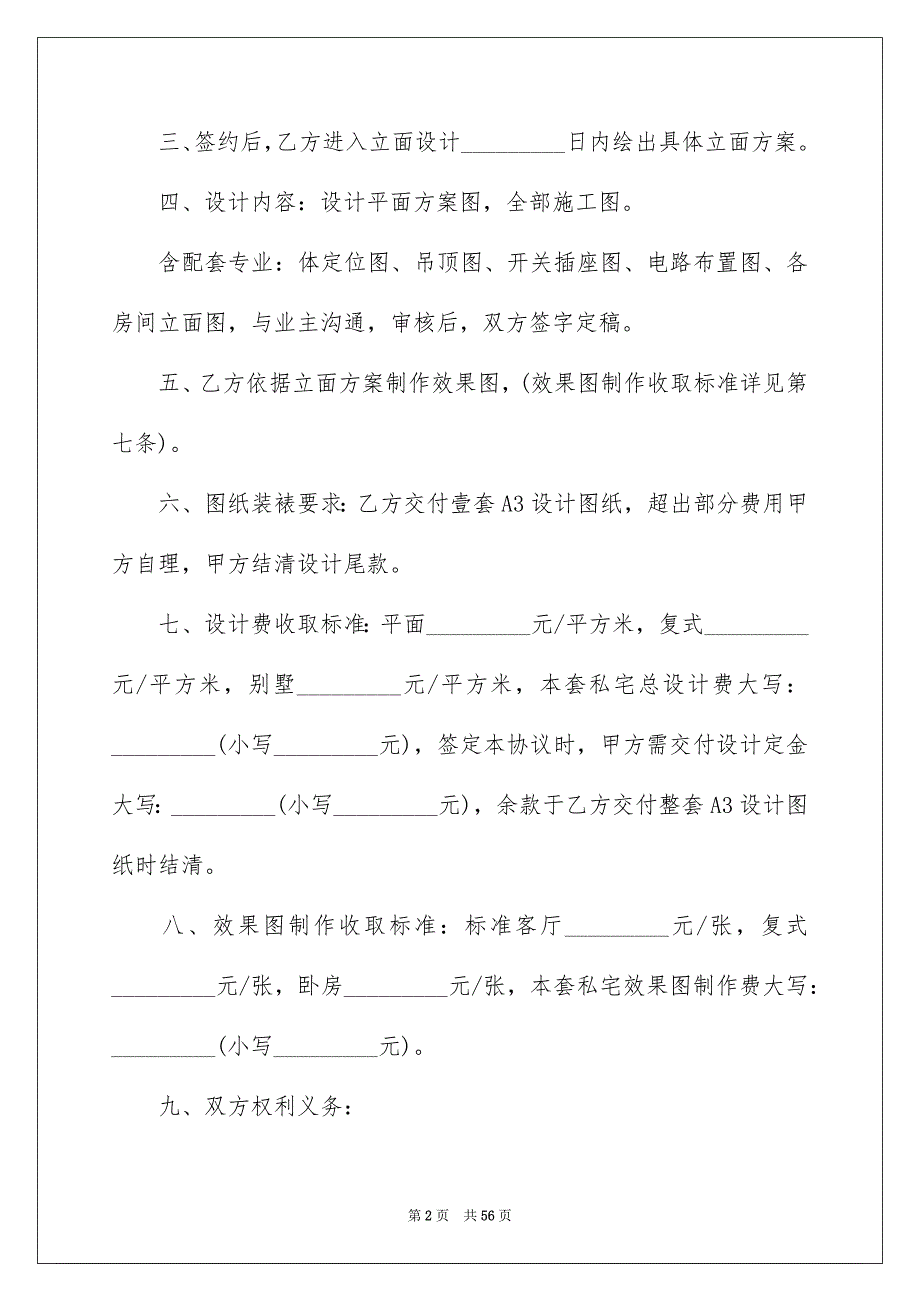 三、签约后，乙方进入立面设计_________日内绘出具体立面方案。
四、设计内容：设计平面方案图，全部施工图。
含配套专业：体定位图、吊顶图、开关插座图、电路布置图、各
房间立面图，与业主沟通，审核后，双方签字定稿。
五、乙方依据立面方案制作效果图，(效果图制作收取标准详见第
七条)。
六、图纸装裱要求：乙方交付壹套 A3 设计图纸，超出部分费用甲
方自理，甲方结清设计尾款。
七、设计费收取标准：平面_________元/平方米，复式_________
元/平方米，别墅_________元/平方米，本套私宅总设计费大写：
_________(小写_________元)，签定本协议时，甲方需交付设计定金
大写：_________(小写_________元)，余款于乙方交付整套 A3 设计图
纸时结清。
八、效果图制作收取标准：标准客厅_________元/张，复式
_________元/张，卧房_________元/张，本套私宅效果图制作费大写：
_________(小写_________元)。
九、双方权利义务：
第 2 页 共 56 页